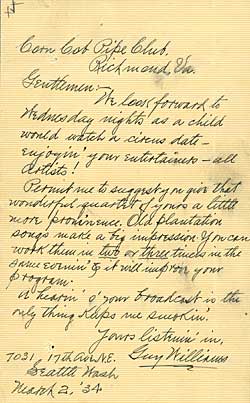 Corn Cob Pipe Club,
Richmond, Va.
Gentlemen:-
We look forward to
Wednesday nights as a child
would watch a circus date -
enjoyin' your entertainers - all
artists!
Permit me to suggest you give that
wonderful quartet of yours a little
more prominence. Old plantation
songs make a big impression. You can
work them in two or three times in the
same evenin' & it will improve your
program.
A hearin' o' your broadcast is the
only thing keeps me smokin'.
Yours listnin' in,
7031 17th Ave N.E. Guy Williams
Seattle Wash
March 2, '34